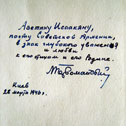 Аветику Исаакяну,
поэту Советской Армении,
в знак глубокого уважения
и любви
к его стихам и его Родине.
Киев
28 марта 1946 г.